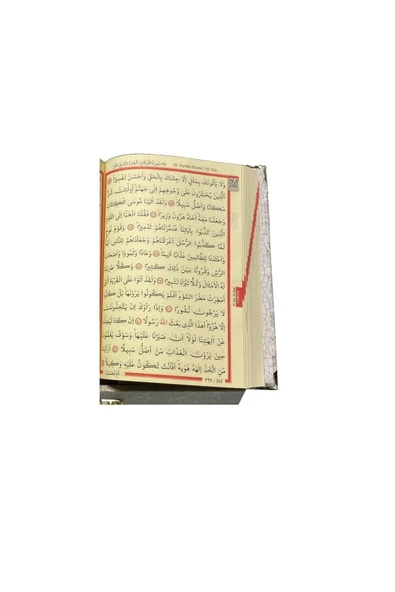 25- Furkân Sûresi / 19. Cüz
وَلَا يَأْتُونَكَ بِمَثَلٍ إِلَّا جِئْنَاكَ بِالْحَقِّ وَأَحْسَنَ تَفْسِيرًا
الَّذِينَ يُحْشَرُونَ عَلٰى وُجُوهِهِمْ إِلٰى جَهَنَّمَ أُولٰئِكَ شَرٌّ
مَكَانًا وَأَضَلُّ سَبِيلًا وَلَقَدْ اٰتَيْنَا مُوسَى الْكِتَابَ
وَجَعَلْنَا مَعَهُ أَخَاهُ هٰرُونَ وَزِيرًا فَقُلْنَا اذْهَبَا إِلَى الْقَوْمِ
الَّذِينَ كَذَّبُوا بِاٰيَاتِنَا فَدَمَّرْنَاهُمْ تَدْمِيرًا وَقَوْمَ نُوحٍ
لَمَّا كَذَّبُوا الرُّسُلَ أَغْرَقْنَاهُمْ وَجَعَلْنَاهُمْ لِلنَّاسِ اٰيَةً
وَأَعْتَدْنَا لِلظَّالِمِينَ عَذَابًا أَلِيمًا وَعَادًا وَثَمُودَ وَأَصْحَابَ
الرَّسِّ وَقُرُونًا بَيْنَ ذٰلِكَ كَثِيرًا وَكُلًّا ضَرَبْنَا
لَهُ الْأَمْثَالَ وَكُلًّا تَبَّرْنَا تَتْبِيرًا وَلَقَدْ أَتَوْا عَلَى الْقَرْيَةِ الَّتِي
أُمْطِرَتْ مَطَرَ السَّوْءِ أَفَلَمْ يَكُونُوا يَرَوْنَهَا بَلْ كَانُوا
لَا يَرْجُونَ نُشُورًا وَإِذَا رَأَوْكَ إِنْ يَتَّخِذُونَكَ
إِلَّا هُزُوًا أَهٰذَا الَّذِي بَعَثَ اللهُ رَسُولًا إِنْ كَادَ لَيُضِلُّنَا
عَنْ اٰلِهَتِنَا لَوْلَا أَنْ صَبَرْنَا عَلَيْهَا وَسَوْفَ يَعْلَمُونَ
حِينَ يَرَوْنَ الْعَذَابَ مَنْ أَضَلُّ سَبِيلًا أَرَأَيْتَ
مَنِ اتَّخَذَ إِلٰهَهُ هَوٰيهُ أَفَأَنْتَ تَكُونُ عَلَيْهِ وَكِيلًا
٣٦٢ / 362